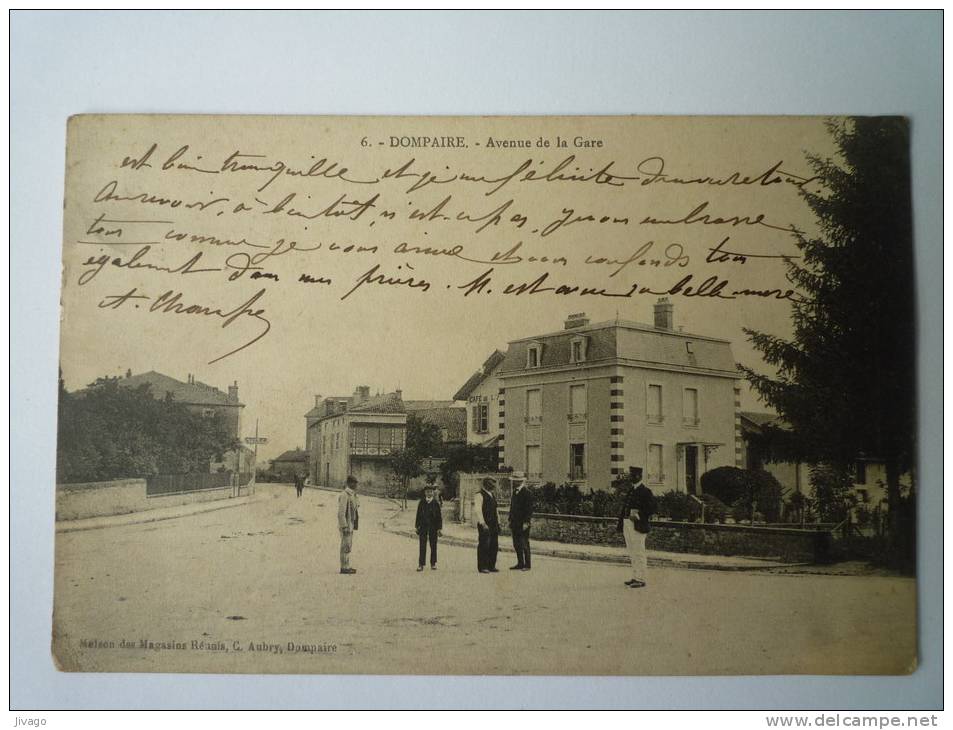 6. - DOMPAIRE. - Avenue de la Gare
est bien tranquille et je me félicite de mon retour
Au revoir, à bientôt, n'est-ce pas, je vous embrasse
tous comme je vous aime et vous confonds tous
également dans mes prières. M. est avec sa belle-mère
A.
CAFÉ DE L
Maison des Magasins Réunis, C. Aubry, Dompaire
Jivago
www.delcampe.net